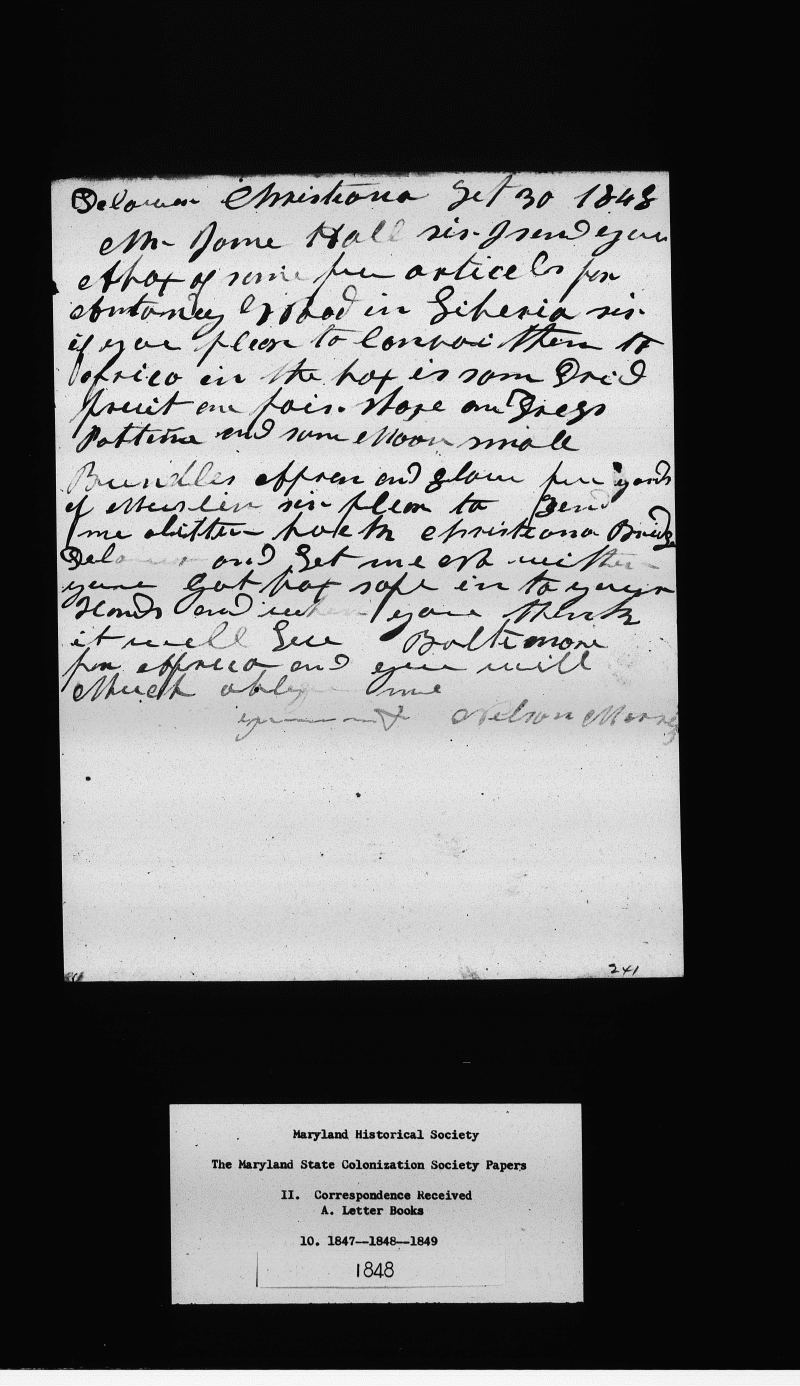 Delowar Christiana Set 30 1848
Mr Jame Hall sir I send you
A box of some few articels for
Antoney Wood in Liberia sir
if you pleas to Convai them to
Africa in the box is som Drid
fruit one pair. shoe one Dress
Patterne and som Moor small
Bundles appren and few yards
of Muslin sir pleas to Send
me a litter back Christiana Bridg
Dela and Let me know
youre Got box safe in to your
Hands and when you think
it will Leve Baltimore
for Affrica and you will
Much oblige me
Nelson
241
Maryland Historical Society
The Maryland State Colonization Society Papers
II. Correspondence Received
A. Letter Books
10. 1847--1848--1849
1848